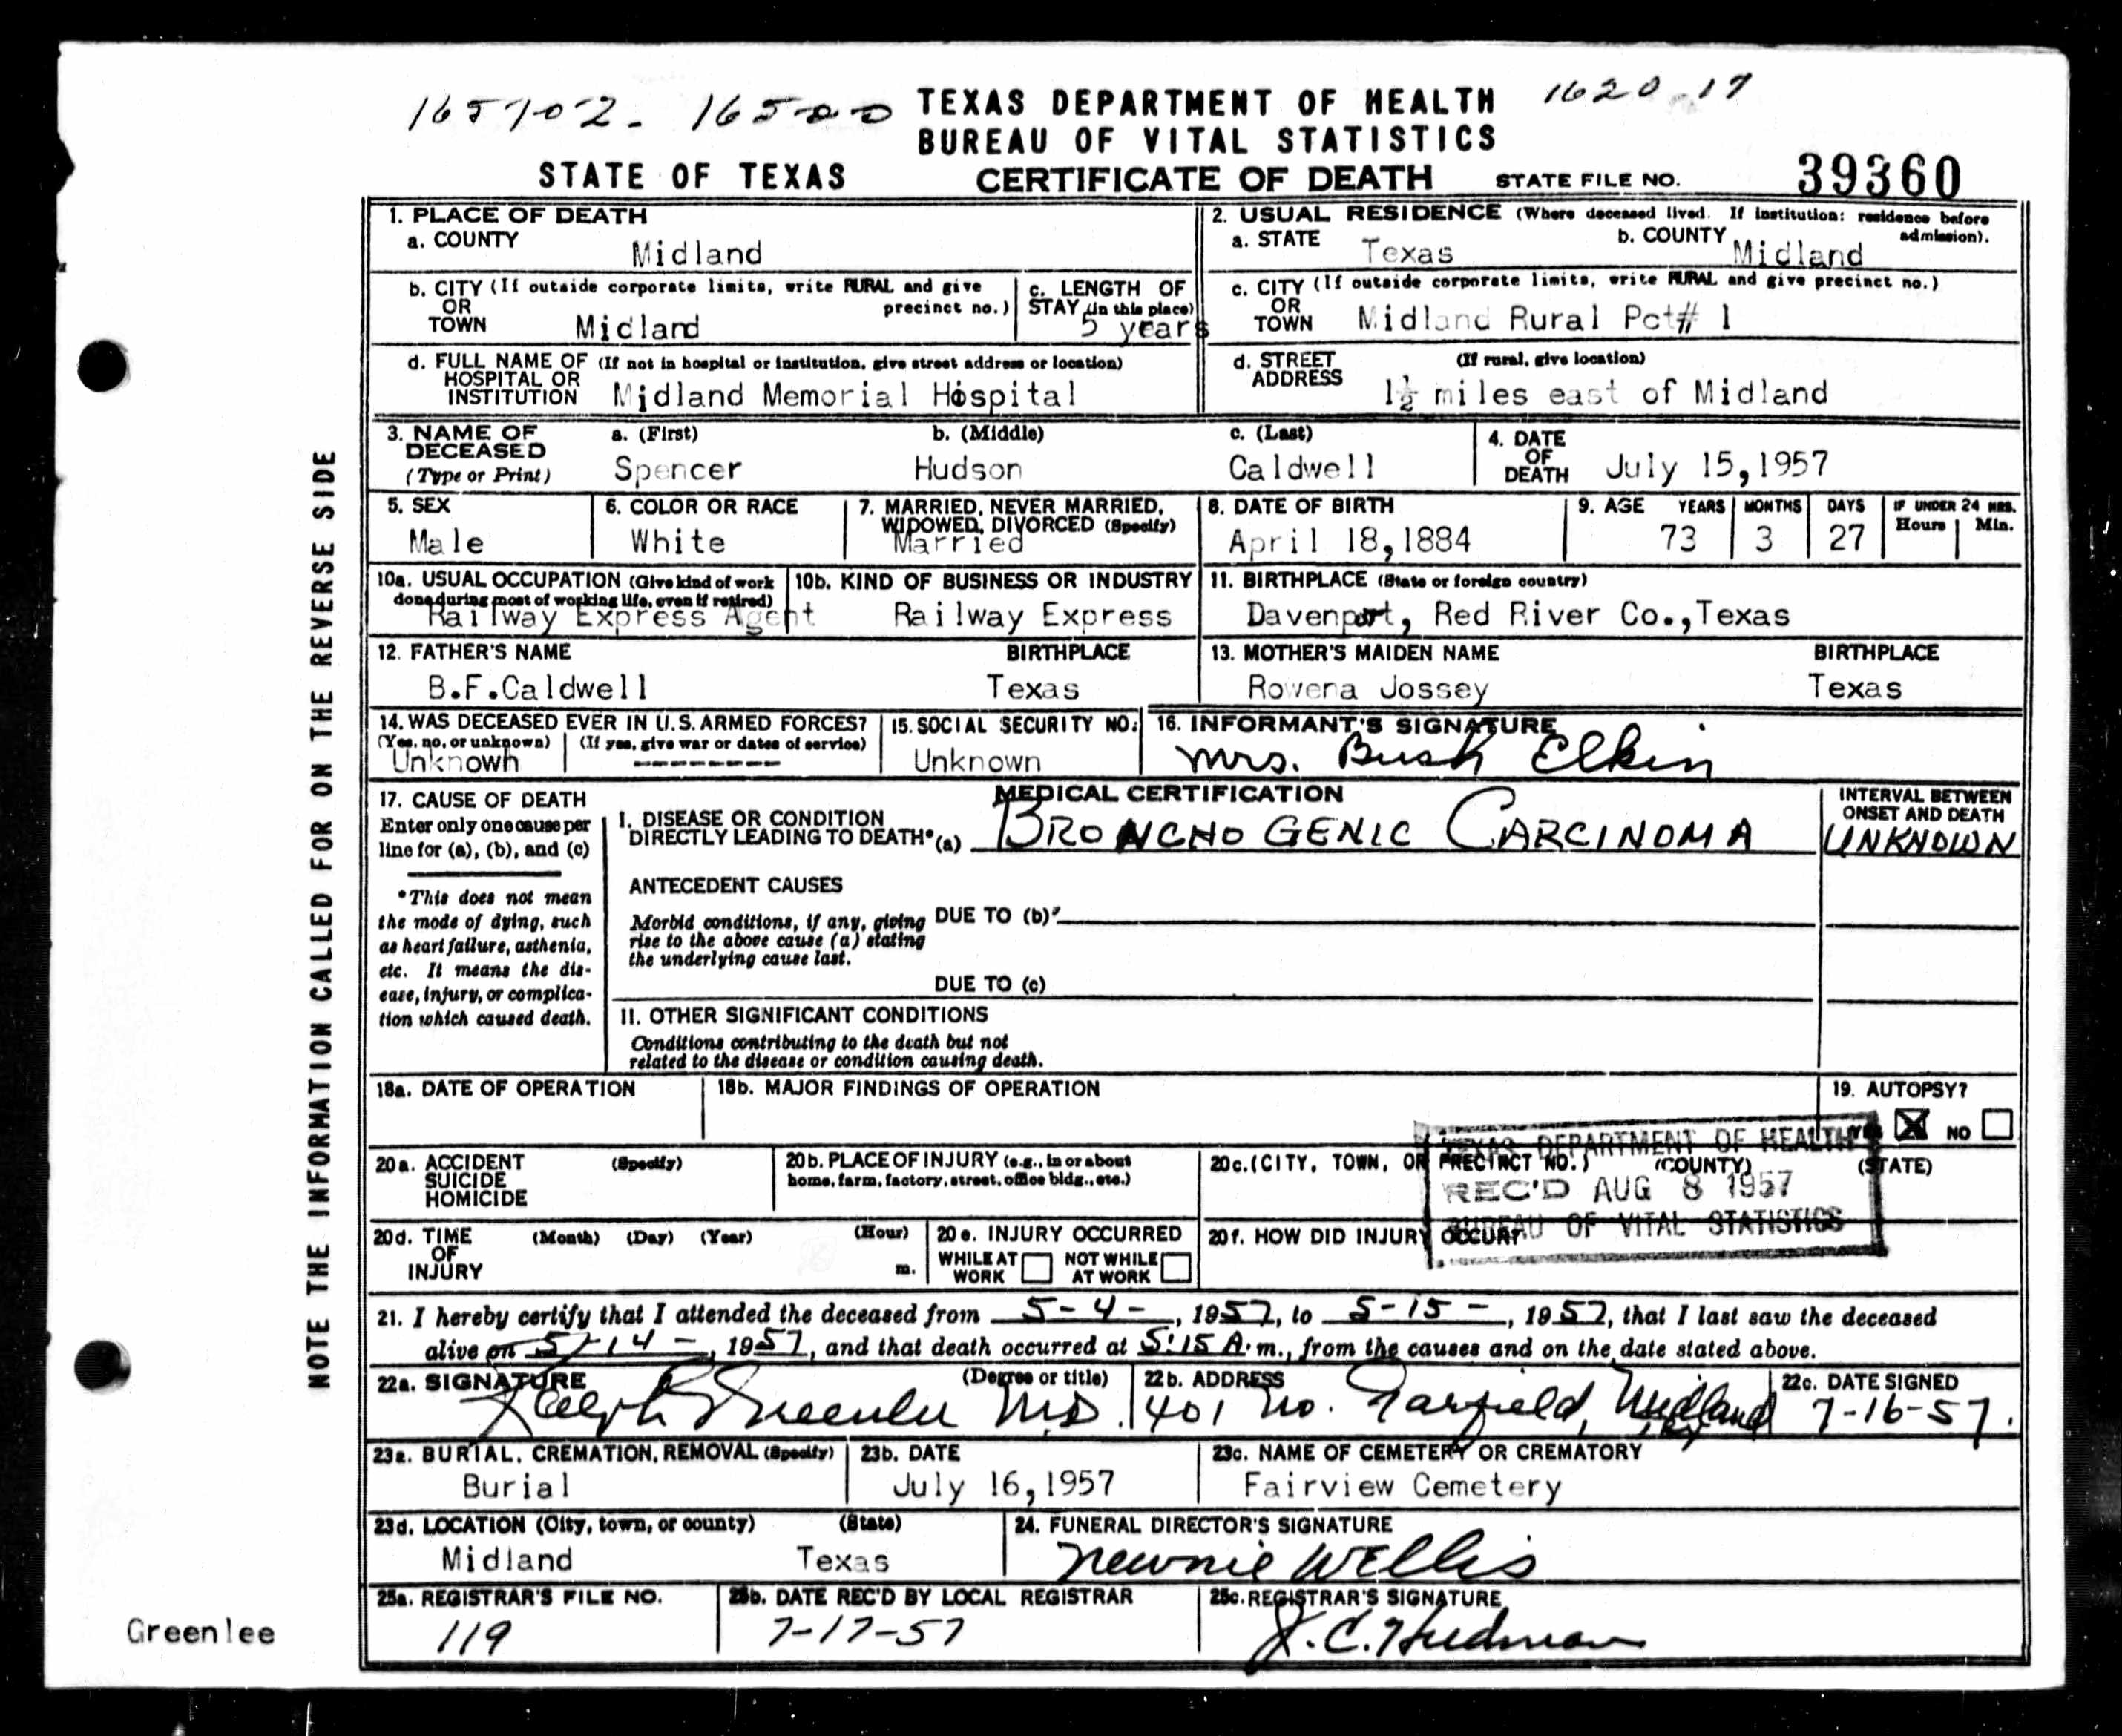 165102. 16500 TEXAS DEPARTMENT OF HEALTH 1620.17
BUREAU OF VITAL STATISTICS
STATE OF TEXAS CERTIFICATE OF DEATH STATE FILE NO. 39360
NOTE THE INFORMATION CALLED FOR ON THE REVERSE SIDE
1. PLACE OF DEATH
a. COUNTY Midland
2. USUAL RESIDENCE (Where deceased lived. If institution: residence before admission).
a. STATE Texas b. COUNTY Midland
b. CITY (If outside corporate limits, write RURAL and give precinct no.)
OR
TOWN Midland
c. LENGTH OF
STAY (in this place)
5 years
c. CITY (If outside corporate limits, write RURAL and give precinct no.)
OR
TOWN Midland Rural Pct# 1
d. FULL NAME OF (If not in hospital or institution, give street address or location)
HOSPITAL OR
INSTITUTION Midland Memorial Hospital
d. STREET (If rural, give location)
ADDRESS 1½ miles east of Midland
3. NAME OF DECEASED
(Type or Print)
a. (First) b. (Middle) c. (Last)
Spencer Hudson Caldwell
4. DATE
OF
DEATH July 15,1957
5. SEX
Male
6. COLOR OR RACE
White
7. MARRIED, NEVER MARRIED,
WIDOWED, DIVORCED (Specify)
Married
8. DATE OF BIRTH
April 18,1884
9. AGE YEARS MONTHS DAYS IF UNDER 24 HRS.
Hours Min.
73 3 27
10a. USUAL OCCUPATION (Give kind of work
done during most of working life, even if retired)
Railway Express Agent
10b. KIND OF BUSINESS OR INDUSTRY
Railway Express
11. BIRTHPLACE (State or foreign country)
Davenport, Red River Co.,Texas
12. FATHER'S NAME BIRTHPLACE
B.F.Caldwell Texas
13. MOTHER'S MAIDEN NAME BIRTHPLACE
Rowena Jossey Texas
14. WAS DECEASED EVER IN U.S. ARMED FORCES?
(Yes, no, or unknown) (If yes, give war or dates of service)
Unknown --------
15. SOCIAL SECURITY NO.
Unknown
16. INFORMANT'S SIGNATURE
Mrs. Bush Elkin
17. CAUSE OF DEATH
Enter only one cause per
line for (a), (b), and (c)
*This does not mean
the mode of dying, such
as heart failure, asthenia,
etc. It means the dis-
ease, injury, or complica-
tion which caused death.
MEDICAL CERTIFICATION
I. DISEASE OR CONDITION
DIRECTLY LEADING TO DEATH* (a) BRONCHOGENIC CARCINOMA
INTERVAL BETWEEN
ONSET AND DEATH
UNKNOWN
ANTECEDENT CAUSES
Morbid conditions, if any, giving
rise to the above cause (a) stating
the underlying cause last.
DUE TO (b)
DUE TO (c)
II. OTHER SIGNIFICANT CONDITIONS
Conditions contributing to the death but not
related to the disease or condition causing death.
18a. DATE OF OPERATION 18b. MAJOR FINDINGS OF OPERATION 19. AUTOPSY?
YES NO
TEXAS DEPARTMENT OF HEALTH
REC'D AUG 8 1957
BUREAU OF VITAL STATISTICS
20a. ACCIDENT (Specify)
SUICIDE
HOMICIDE
20b. PLACE OF INJURY (e.g., in or about
home, farm, factory, street, office bldg., etc.)
20c. (CITY, TOWN, OR PRECINCT NO.) (COUNTY) (STATE)
20d. TIME (Month) (Day) (Year) (Hour)
OF
INJURY m.
20e. INJURY OCCURRED
WHILE AT WORK NOT WHILE AT WORK
20f. HOW DID INJURY OCCUR?
21. I hereby certify that I attended the deceased from 5-4-, 1957, to 5-15-, 1957, that I last saw the deceased
alive on 5-14-, 1957, and that death occurred at 5:15 A.m., from the causes and on the date stated above.
22a. SIGNATURE (Degree or title)
Ralph Greenlee M.D.
22b. ADDRESS
1401 No. Garfield, Midland
22c. DATE SIGNED
7-16-57.
23a. BURIAL, CREMATION, REMOVAL (Specify)
Burial
23b. DATE
July 16,1957
23c. NAME OF CEMETERY OR CREMATORY
Fairview Cemetery
23d. LOCATION (City, town, or county) (State)
Midland Texas
24. FUNERAL DIRECTOR'S SIGNATURE
Newnie Wellis
25a. REGISTRAR'S FILE NO.
119
25b. DATE REC'D BY LOCAL REGISTRAR
7-17-57
25c. REGISTRAR'S SIGNATURE
J. C. Hudman
Greenlee